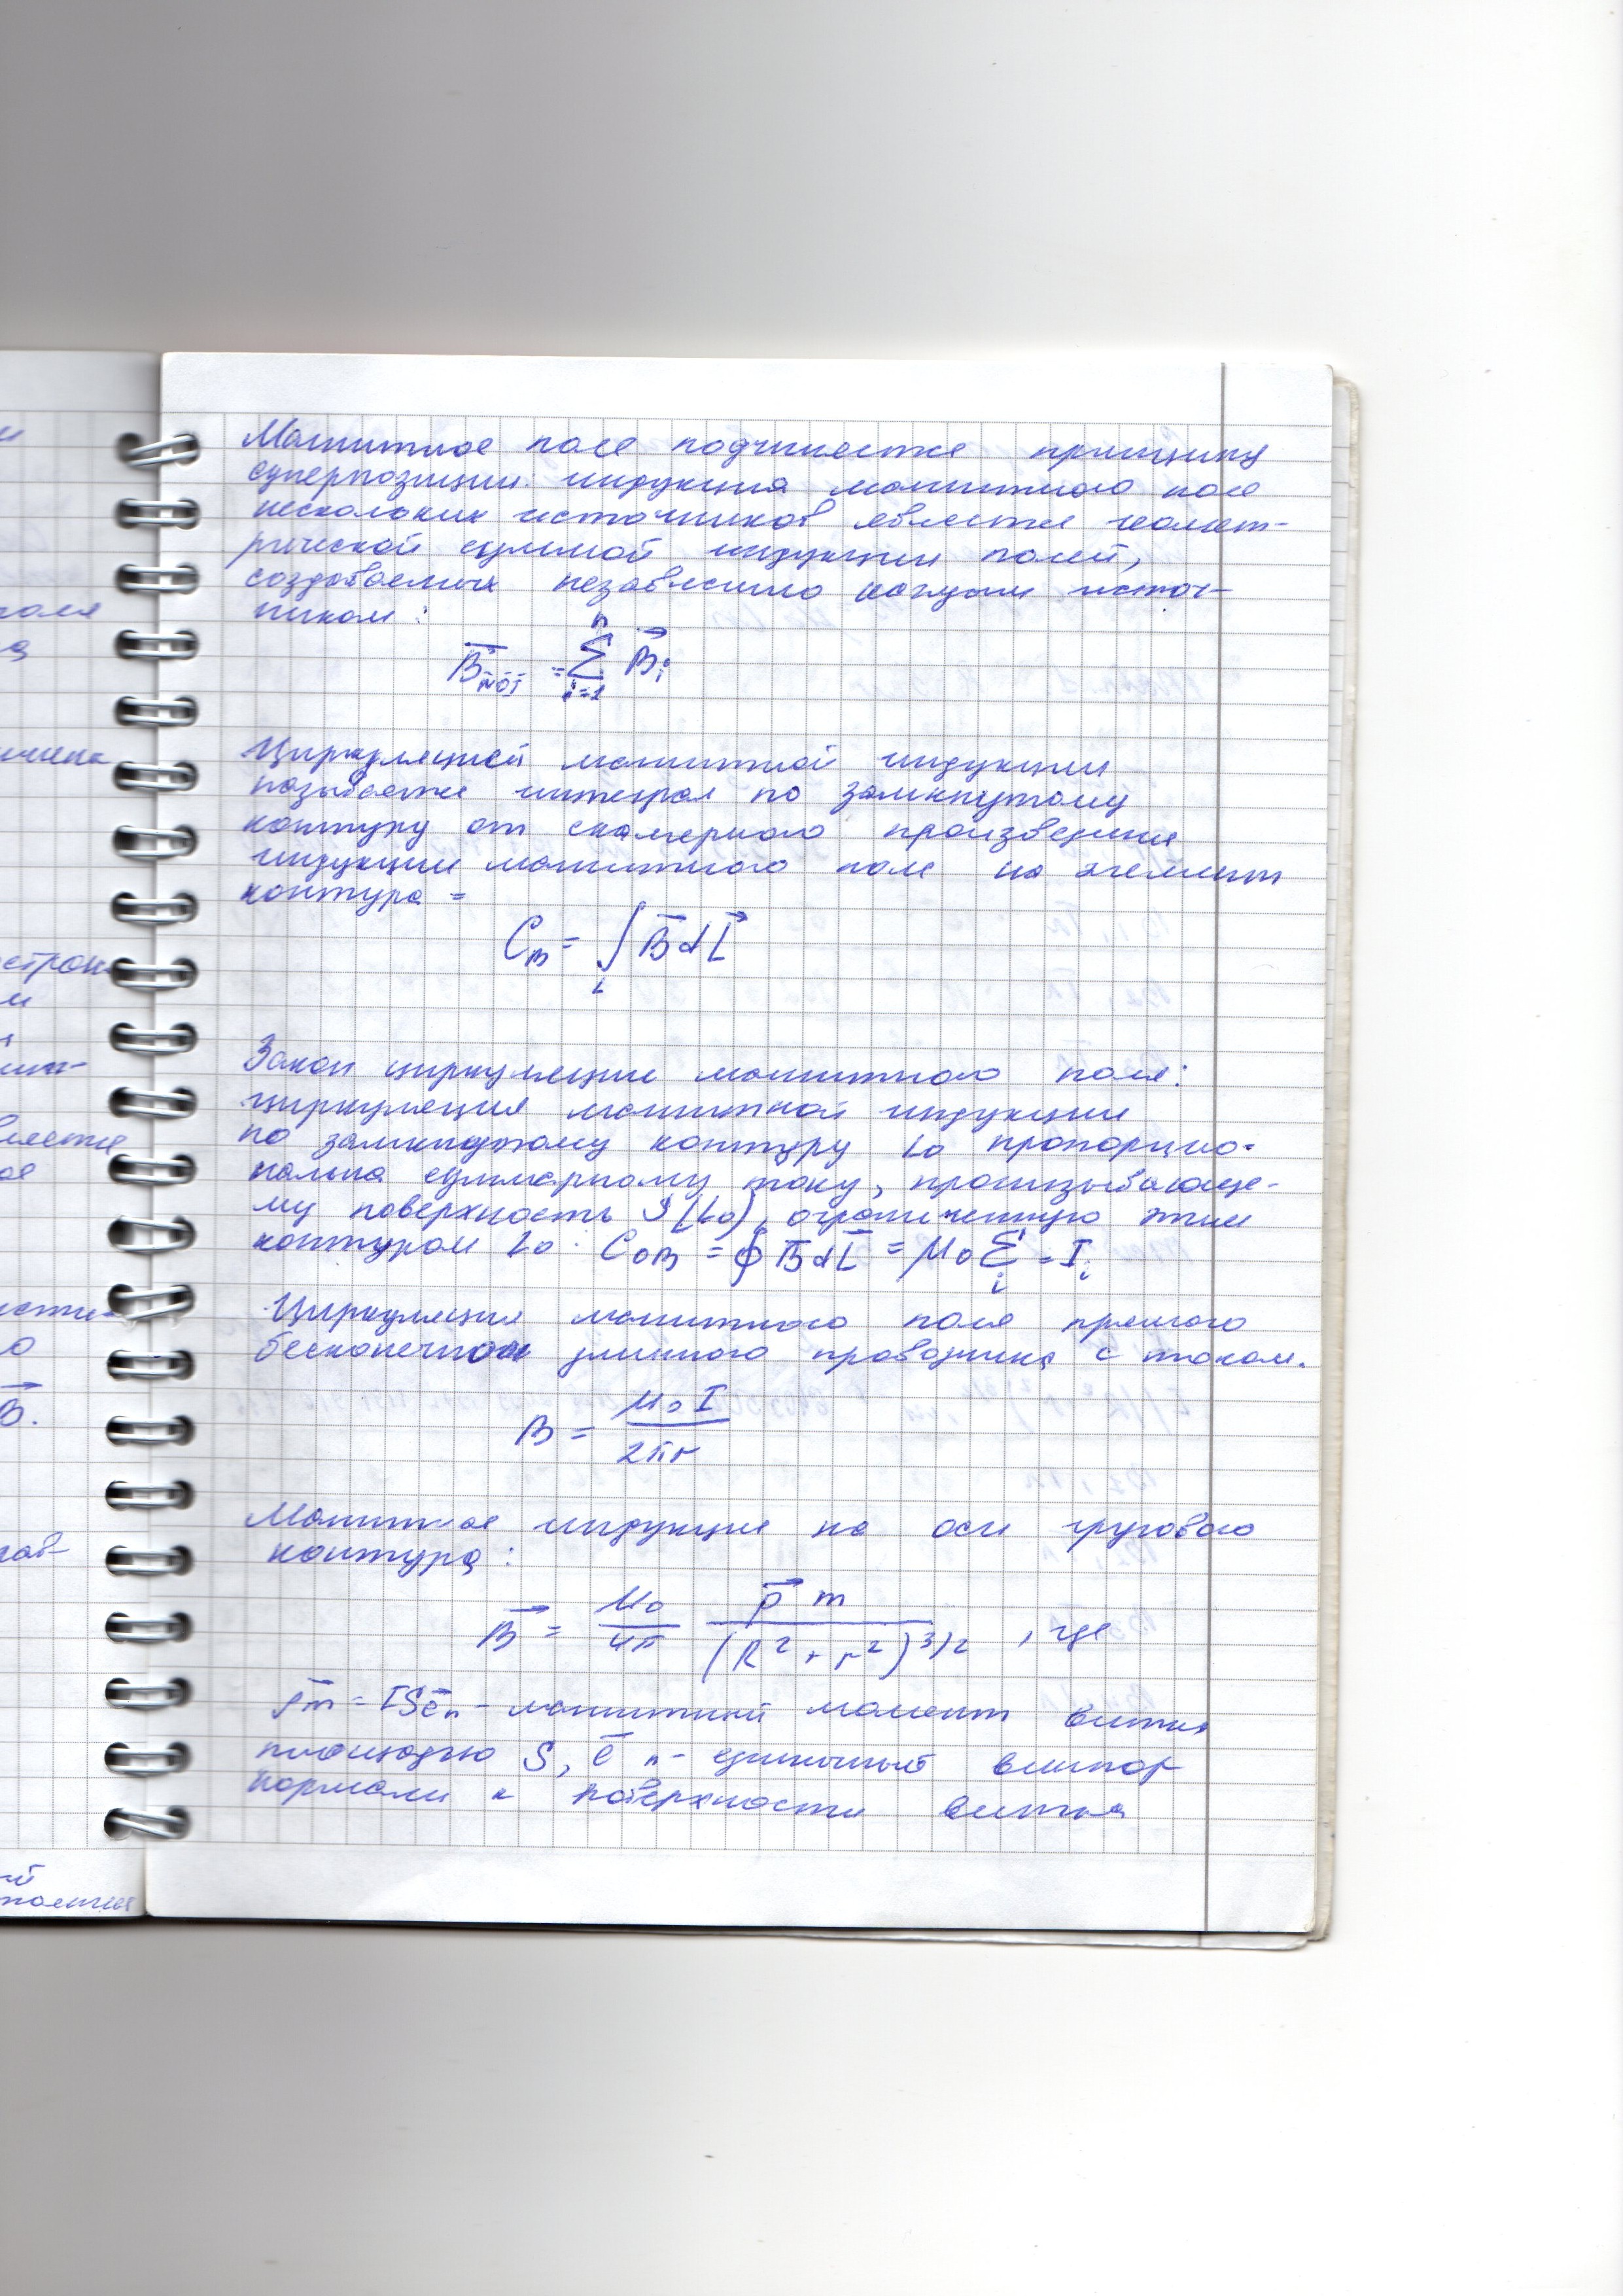 Магнитное поле подчиняется принципу
суперпозиции: индукция магнитного поля
нескольких источников является геомет-
рической суммой индукции полей,
создаваемых независимо каждым источ-
ником:
B⃗ = Σ B⃗i
n
i=1
Циркуляцией магнитной индукции
называется интеграл по замкнутому
контуру от скалярного произведения
индукции магнитного поля на элемент
контура =
C_B = ∫_L B⃗ dL⃗
Закон циркуляции магнитного поля:
циркуляция магнитной индукции
по замкнутому контуру L₀ пропорцио-
нальна суммарному току, пронизывающе-
му поверхность S(L₀), ограниченную этим
контуром L₀. C₀B = ∮ B⃗ dL⃗ = μ₀ Σ_i = I_i
Циркуляция магнитного поля прямого
бесконечном длинного проводника с током.
B = μ₀I / 2πr
Магнитная индукция на оси кругового
контура:
B⃗ = μ₀/4π · p⃗m / (R² + r²)^3/2 , где
p⃗m = ISe⃗n - магнитный момент витка
площадью S, e⃗n - единичный вектор
нормали к поверхности витка
и
поля
стров
и
яется
о
B⃗.
ий